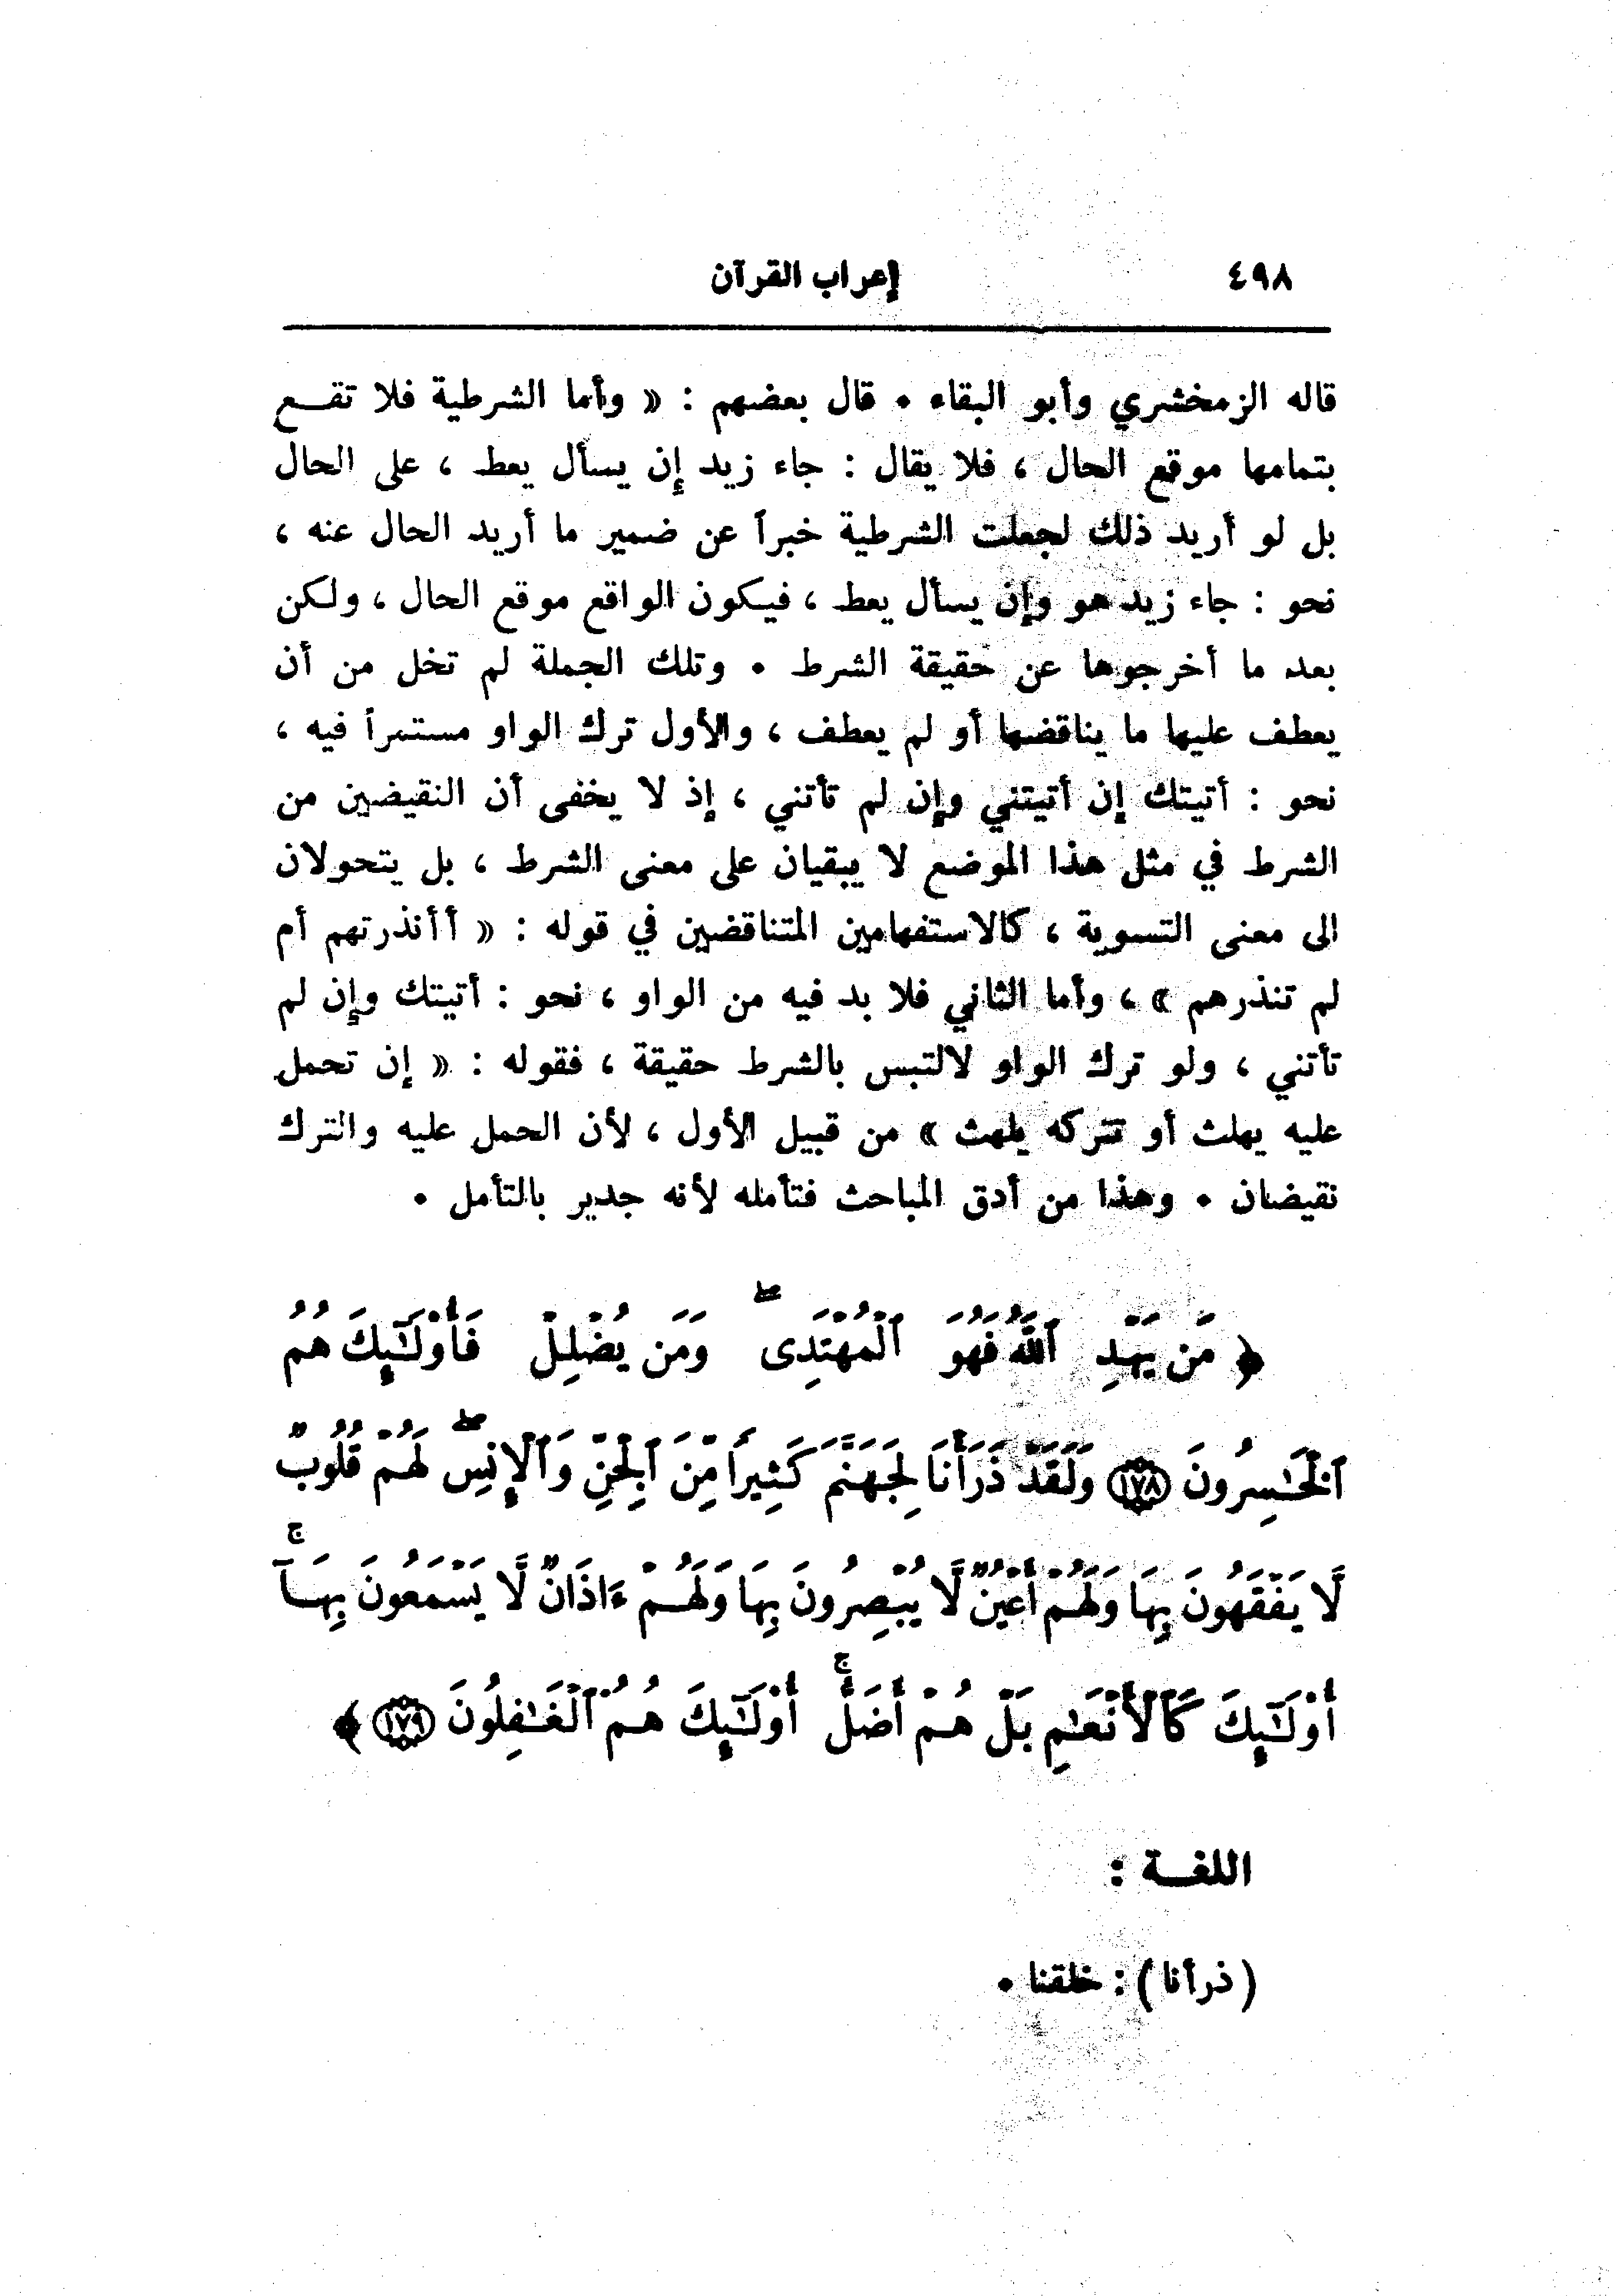 ٤٩٨ إعراب القرآن
قاله الزمخشري وأبو البقاء • قال بعضهم : « وأما الشرطية فلا تقـــع
بتمامها موقع الحال ، فلا يقال : جاء زيد إن يسأل يعط ، على الحال
بل لو أريد ذلك لجعلت الشرطية خبراً عن ضمير ما أريد الحال عنه ،
نحو : جاء زيد هو وإن يسأل يعط ، فيكون الواقع موقع الحال ، ولكن
بعد ما أخرجوها عن حقيقة الشرط • وتلك الجملة لم تخل من أن
يعطف عليها ما يناقضها أو لم يعطف ، والأول ترك الواو مستمراً فيه ،
نحو : أتيتك إن أتيتني وإن لم تأتني ، إذ لا يخفى أن النقيضين من
الشرط في مثل هذا الموضع لا يبقيان على معنى الشرط ، بل يتحولان
الى معنى التسوية ، كالاستفهامين المتناقضين في قوله : « أأنذرتهم أم
لم تنذرهم » ، وأما الثاني فلا بد فيه من الواو ، نحو : أتيتك وإن لم
تأتني ، ولو ترك الواو لالتبس بالشرط حقيقة ، فقوله : « إن تحمل
عليه يهلث أو تتركه يلهث » من قبيل الأول ، لأن الحمل عليه والترك
نقيضان • وهذا من أدق المباحث فتأمله لأنه جدير بالتأمل •
﴿ مَن يَهْدِ ٱللَّهُ فَهُوَ ٱلْمُهْتَدِى ۖ وَمَن يُضْلِلْ فَأُو۟لَـٰٓئِكَ هُمُ
ٱلْخَـٰسِرُونَ ١٧٨ وَلَقَدْ ذَرَأْنَا لِجَهَنَّمَ كَثِيرًا مِّنَ ٱلْجِنِّ وَٱلْإِنسِ ۖ لَهُمْ قُلُوبٌ
لَّا يَفْقَهُونَ بِهَا وَلَهُمْ أَعْيُنٌ لَّا يُبْصِرُونَ بِهَا وَلَهُمْ ءَاذَانٌ لَّا يَسْمَعُونَ بِهَآ ۚ
أُو۟لَـٰٓئِكَ كَٱلْأَنْعَـٰمِ بَلْ هُمْ أَضَلُّ ۚ أُو۟لَـٰٓئِكَ هُمُ ٱلْغَـٰفِلُونَ ١٧٩ ﴾
اللغـــة :
( ذرأنا ) : خلقنا •